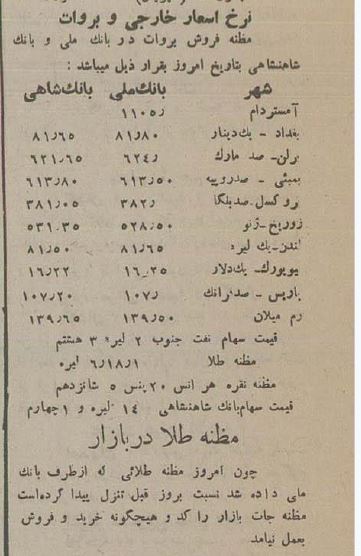 نرخ اسعار خارجی و بروات
مظنه فروش بروات در بانك ملی و بانك
شاهنشاهی بتاریخ امروز بقرار ذیل میباشد :
شهر بانك‌ملی بانك‌شاهی
آمستردام ۱۱۰۵٫
بغداد - یك‌دینار ۸۱٫۸۰ ۸۱٫۶۵
برلن - صد مارك ۶۲۴٫ ۶۲۱٫۶۵
بمبئی - صدروپیه ۶۱۳٫۵۰ ۶۱۳٫۸۰
بروکسل - صدبلگا ۳۸۲٫ ۳۸۱٫۰۵
زوریخ - ژنو ۵۲۸٫۵۰ ۵۳۱٫۳۵
لندن - یك لیره ۸۱٫۶۵ ۸۱٫۵۰
نیویورك - یك‌دلار ۱۶٫۲۵ ۱۶٫۲۲
پاریس - صدفرانك ۱۰۷٫ ۱۰۷٫۲۰
رم میلان ۱۳۹٫۵۰ ۱۳۹٫۶۵
قیمت سهام نفت جنوب ۲ لیره ۳ هشتم
مظنه طلا ۶٫۱۸٫۱ لیره
مظنه نقره هر انس ۲۰ پنس ۵ شانزدهم
قیمت سهام بانك شاهنشاهی ۱۴ لیره و ۱ چهارم
مظنه طلا در بازار
چون امروز مظنه طلائی که ازطرف بانك
ملی داده شد نسبت بروز قبل تنزل پیدا کرده‌است
مظنه جات بازار را کد و هیچگونه خرید و فروش
بعمل نیامد